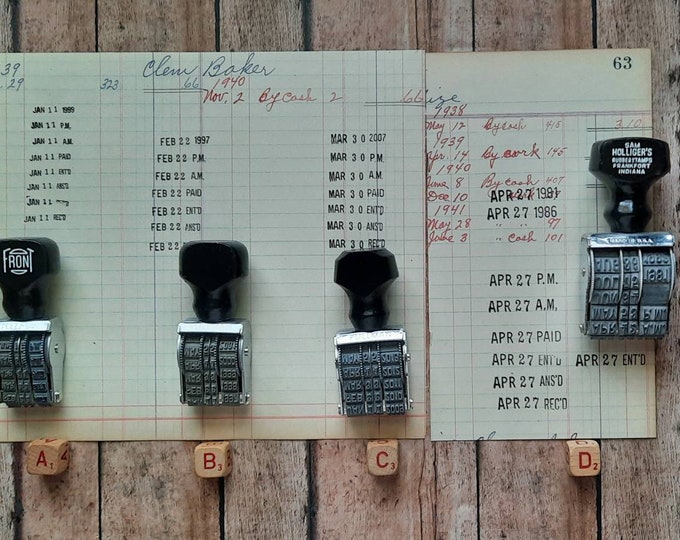 39
29
323
Clem Baker
66
1940
Nov. 2 By Cash 2 66
JAN 11 1999
JAN 11 P.M.
JAN 11 A.M.
JAN 11 PAID
JAN 11 ENT'D
JAN 11 ANS'D
JAN 11 REC'D
FEB 22 1997
FEB 22 P.M.
FEB 22 A.M.
FEB 22 PAID
FEB 22 ENT'D
FEB 22 ANS'D
FEB 22
MAR 30 2007
MAR 30 P.M.
MAR 30 A.M.
MAR 30 PAID
MAR 30 ENT'D
MAR 30 ANS'D
MAR 30 REC'D
63
1938
May 12 By Cash 415 3.10
1939
Apr. 14 By work 145
1940
June 8 By Cash 407
Dec 10
1941
May 28 " " 97
June 3 " Cash 101
APR 27 1981
APR 27 1986
APR 27 P.M.
APR 27 A.M.
APR 27 PAID
APR 27 ENT'D APR 27 ENT'D
APR 27 ANS'D
APR 27 REC'D
FRONT
SAM
HOLLIGER'S
RUBBER STAMPS
FRANKFORT
INDIANA
MADE IN U.S.A.
A1
B3
C3
D2